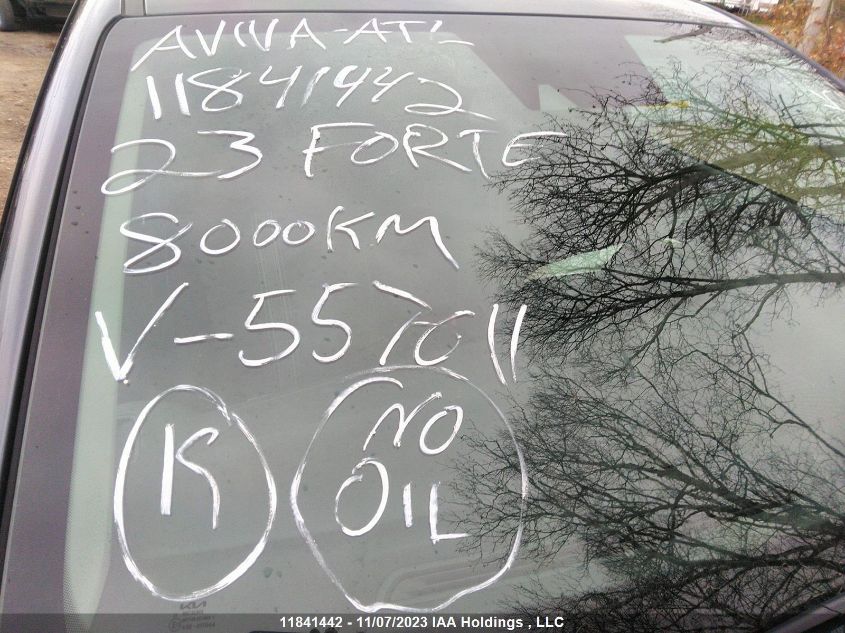 AVIVA-ATL
11841442
23 FORTE
8000KM
V-557011
K
NO
OIL
KIA
11841442 - 11/07/2023 IAA Holdings , LLC